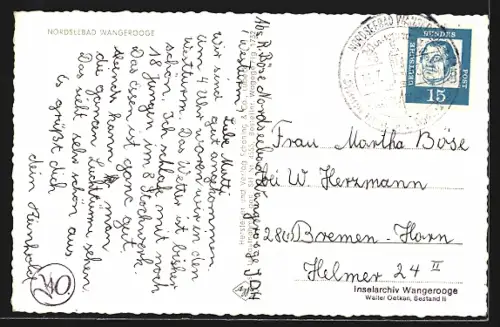 NORDSEEBAD WANGEROOGE
Abs. R. Böse Nordseebad Wangerooge JDH
Westturm. Liebe Mutti
Wir sind gut angekommen.
um 4 Uhr waren wir in den
Westturm. Das Wetter ist bisher
schön. Ich schlafe mit noch
18 Jungen im 8 Stockwerk.
Das essen ist ganz gut.
kann man
die ganzen Leuchttürme sehen
Das sieht sehr schön aus
Es grüßt dich
dein Reinhold
40
NORDSEEBAD WANGEROOGE
DEUTSCHE
BUNDES
POST
15
Frau Martha Böse
bei W. Herzmann
28 Bremen-Horn
Helmer 24 II
Inselarchiv Wangerooge
Walter Oetken, Bestand II